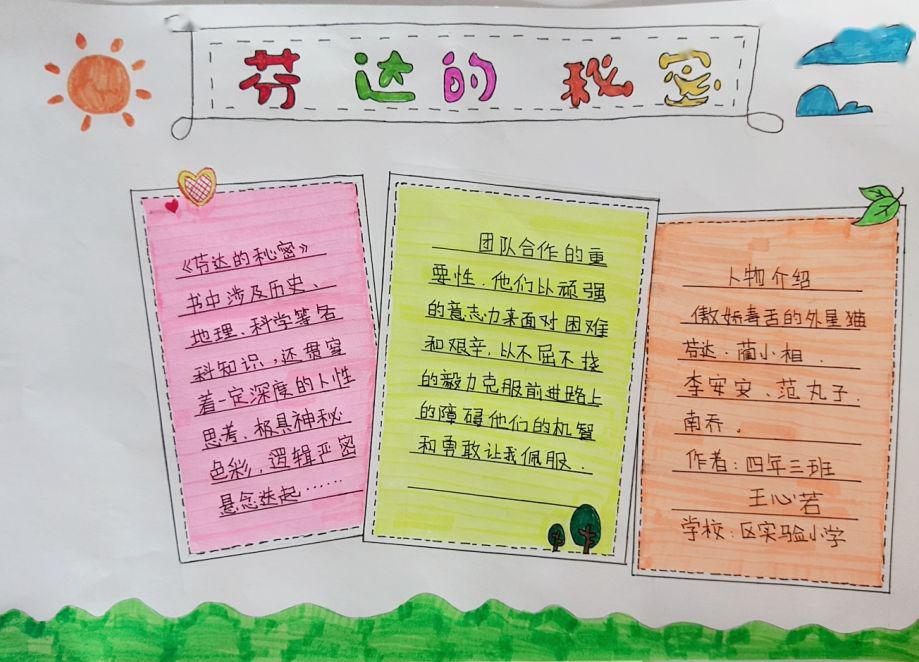 芬达的秘密
《芬达的秘密》
书中涉及历史、
地理、科学等各
科知识，还贯穿
着一定深度的人性
思考、极具神秘
色彩，逻辑严密
悬念迭起……
团队合作的重
要性．他们以顽强
的意志力来面对困难
和艰辛，以不屈不挠
的毅力克服前进路上
的障碍他们的机智
和勇敢让我佩服．
人物介绍
傲娇毒舌的外星猫
芬达、蔺小相．
李安安、范丸子．
南乔。
作者：四年三班
王心若
学校：区实验小学